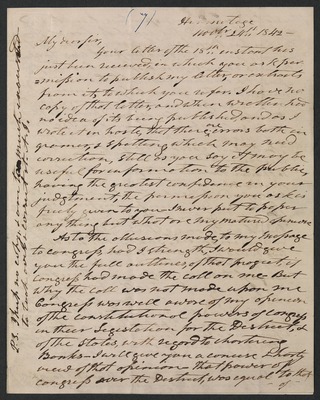 (7)
Hermitage
Novbr 24th 1842—
My dear sir,
Your letter of the 18th instant has
just been received, in which you ask per
mission to publish my letter, or extracts
from it, to which you refer. I have no
copy of that letter, and when written had
no idea of its being published, and as I
wrote it in haste, that there, errors both in
gramer, & spelling which may need
correction, still as you say it may be
useful for information to the public,
having the greatest confidence in your
Judgement, the permission you ask is
freely given to you. I never put to paper
any thing but what are my matured opinions
As to the allusions made to my message
to congress, had I strength, I would give
you the full outlines of that project, if
congress had made the call on me. But
why the call was not made upon me
Congress was well aware of my opinion
of the constitutional powers of congress
in their Legislation for the District, &
of the States, with regard to chartering
Banks— I will give you a concise & short
view of that opinion that power of
congress over the District, was equal to that
of
P.S. I keep no copy